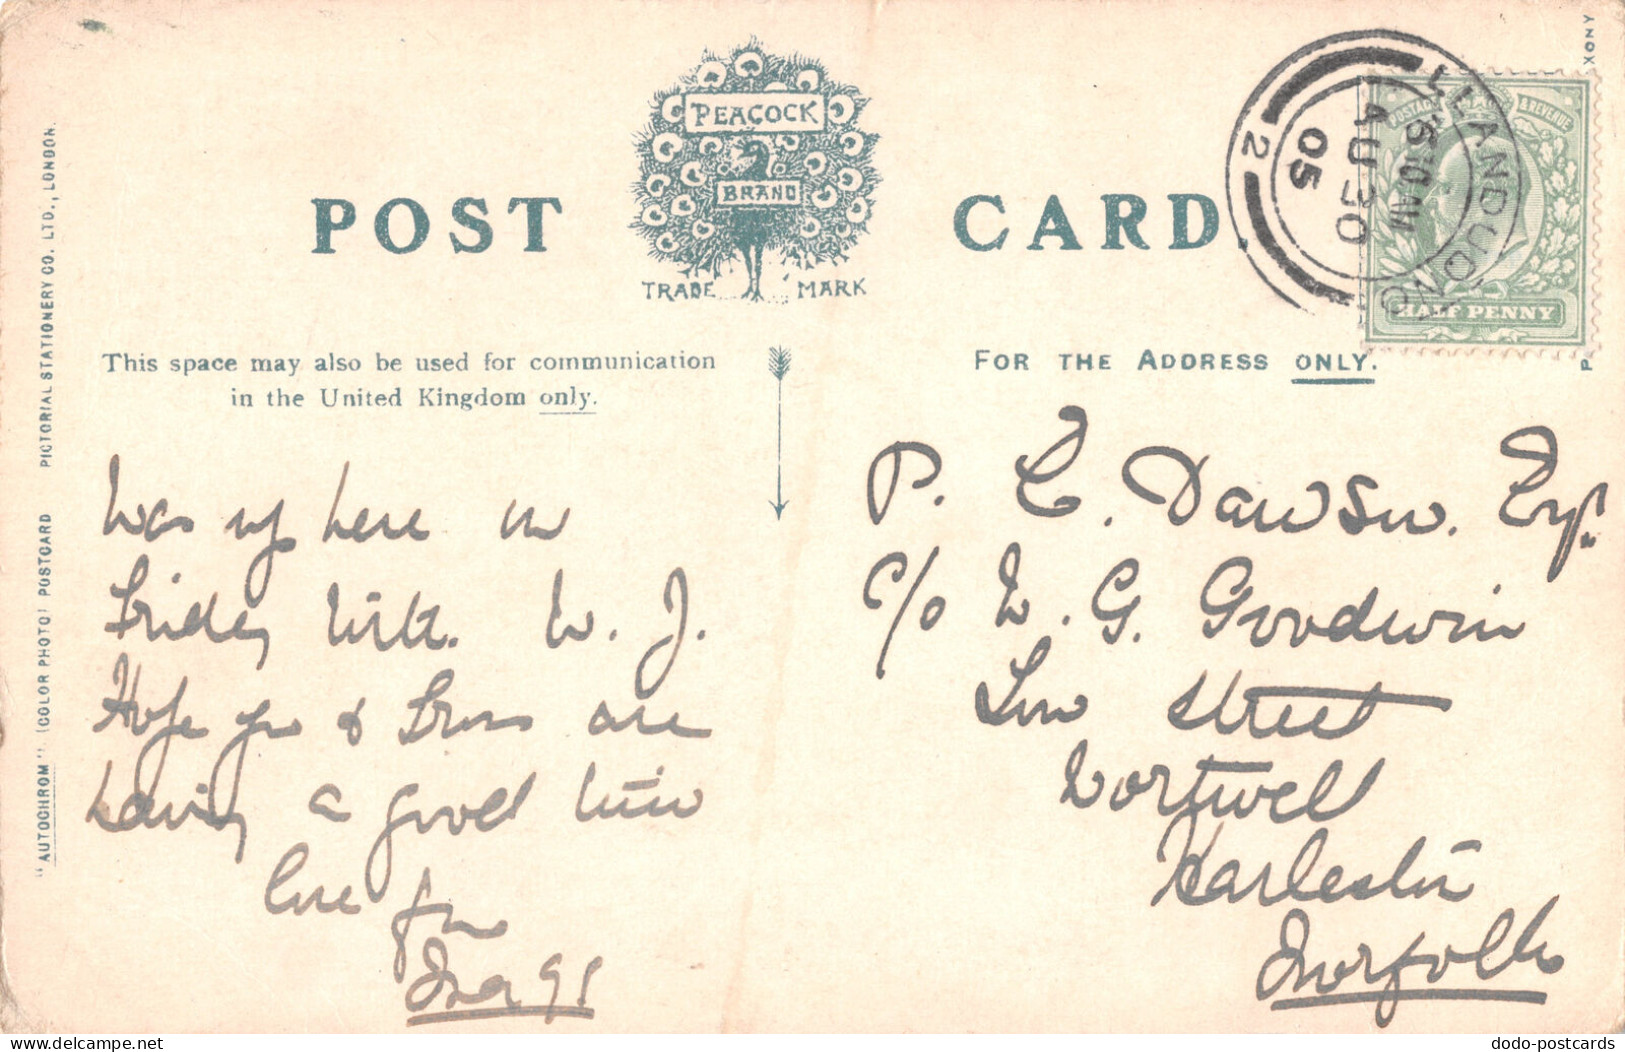 POST CARD.
PEACOCK
BRAND
TRADE MARK
This space may also be used for communication
in the United Kingdom only.
FOR THE ADDRESS ONLY.
"AUTOCHROM" (COLOR PHOTO) POSTCARD PICTORIAL STATIONERY CO. LTD., LONDON.
LLANDUDNO
10 AM
AU 30
05
2
POSTAGE & REVENUE
HALF PENNY
P
XONY
Was up here on
Friday with W. J.
Hope you &  are
having a good time
Love from
P. E. Dawson. Esq.
c/o W. G. Goodwin
Low Street
Wortwell
Harleston
Norfolk
dodo-postcards